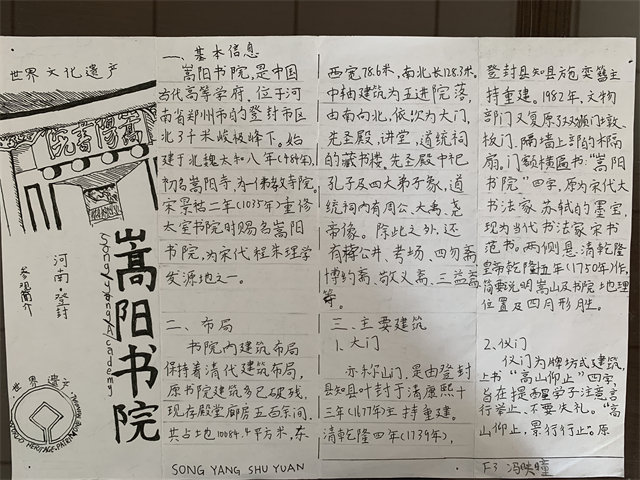 世界文化遗产
嵩阳书院
嵩阳书院
Songyang Academy
河南·登封
参观简介
世界遗产
WORLD HERITAGE · PATRIMOINE MONDIAL
一、基本信息
嵩阳书院,是中国
古代高等学府,位于河
南省郑州市的登封市区
北3千米峻极峰下。始
建于北魏太和八年(484年),
初名嵩阳寺,为佛教寺院。
宋景祐二年(1035年)重修
太室书院时赐名嵩阳
书院,为宋代程朱理学
发源地之一。
二、布局
书院内建筑布局
保持着清代建筑布局,
原书院建筑多已破残,
现存殿堂廊房五百余间,
共占地10084.4平方米,东
SONG YANG SHU YUAN
西宽78.6米,南北长128.3米,
中轴建筑为五进院落,
由南向北,依次为大门,
先圣殿,讲堂,道统祠
的藏书楼。先圣殿中祀
孔子及四大弟子象,道
统祠内有周公、大禹、尧
帝像。除此之外,还
有博公井、考场、四勿斋、
博约斋、敬义斋、三益斋
等。
三、主要建筑
1.大门
亦称山门,是由登封
县知县叶封于清康熙十
三年(1677年)主持重建。
清乾隆四年(1739年),
登封县知县施奕簪主
持重建。1982年,文物
部门又复原了双狮门墩、
板门、隔墙上部的木隔
扇。门额横匾书“嵩阳
书院”四字,原为宋代大
书法家苏轼的墨宝,
现为当代书法家宋书
范书。两侧悬清乾隆
皇帝乾隆五年(1750年)作,
简要说明嵩山及书院地理
位置及四月形胜。
2.仪门
仪门为牌坊式建筑,
上书“高山仰止”四字,
旨在提醒学子注意言
行举止、不要失礼。“高
山仰止,景行行止。原
F3 冯映瞳